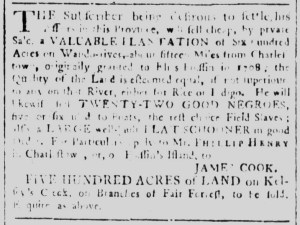 THE Subscriber being desirous to settle his
affairs in this Province, will sell cheap, by private
Sale, a VALUABLE PLANTATION of Six hundred
Acres on Wando-river, about fifteen Miles from Charles-
town, originally granted to in 1708; the
Quality of the Land is esteemed equal, if not superior
to any on that River, either for Rice or Indigo. He will
likewise sell TWENTY-TWO GOOD NEGROES,
five or six used to Boats, the rest choice Field Slaves;
also a LARGE well-built FLAT SCHOONER in good
Order. For Particulars apply to Mr. PHILLIP HENRY
in Charlestown, or, on Island, to
JAMES COOK.
FIVE HUNDRED ACRES of LAND on
Creek, on Branches of Fair Forrest, to be sold.
Enquire as above.